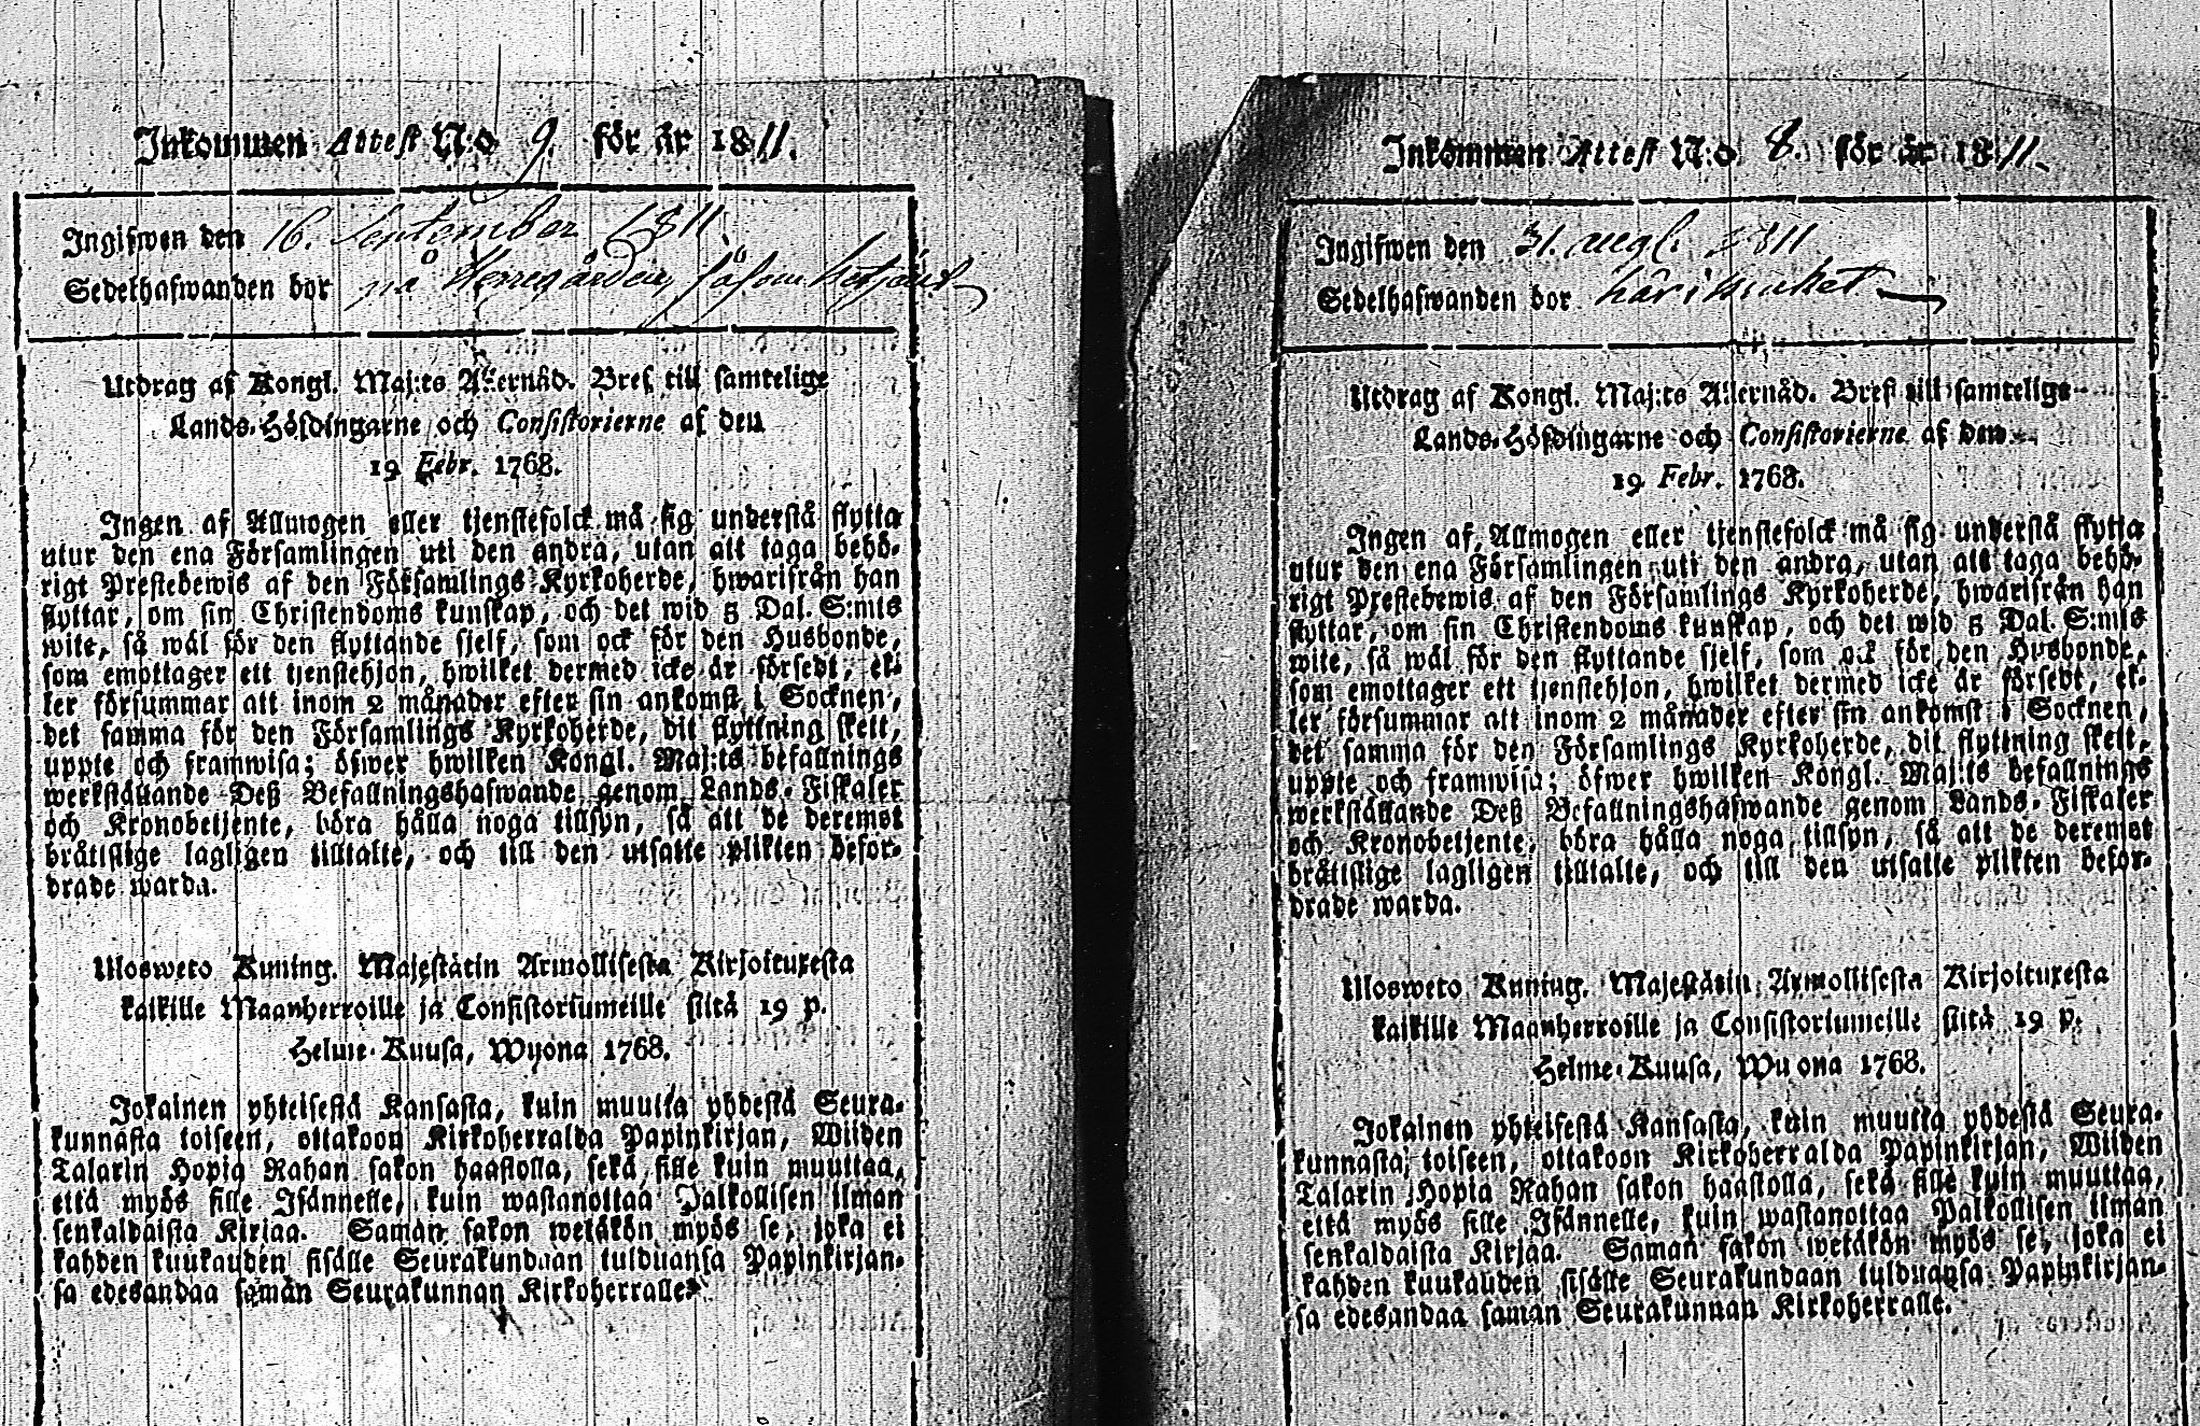 Inkommen Attest N:o 9. för år 1811.
Ingifwen den 16. September 1811.
Sedelhafwanden bor på Herregården, såsom
Utdrag af Kongl. Maj:ts Allernåd. Bref till samtelige
Lands-Höfdingarne och Consistorierne af den
19 Febr. 1768.
Ingen af Allmogen eller tjenstefolck må sig understå flytta
utur den ena Församlingen uti den andra, utan att taga behö-
rigt Prestebewis af den Församlings Kyrkoherde, hwarifrån han
flyttar, om sin Christendoms kunskap, och det wid 5 Dal. S:mts
wite, så wäl för den flyttande sjelf, som ock för den Husbonde,
som emottager ett tjenstehjon, hwilket dermed icke är försedt, el-
ler försummar att inom 2 månader efter sin ankomst i Socknen,
det samma för den Församlings Kyrkoherde, dit flyttning skett,
uppte och framwisa; öfwer hwilken Kongl. Maj:ts befallnings
werkställande Deß Befallningshafwande genom Lands-Fiskaler
och Kronobetjente, böra hålla noga tillsyn, så att de deremot
bråttslige lagligen tilltalte, och till den utsatte plikten befor-
drade warda.
Ulosweto Kuning. Majestätin Armollisesta Kirjoituxesta
kaikille Maanherroille ja Consistoriumeille siitä 19 p.
Helme-Kuusa, Wuona 1768.
Jokainen yhteisestä Kansasta, kuin muutta yhdestä Seura-
kunnasta toiseen, ottakoon Kirkoherralda Papinkirjan, Wiiden
Talarin Hopia Rahan sakon haastolla, sekä sille kuin muuttaa,
että myös sille Isännelle, kuin wastanottaa Palkollisen ilman
senkaldaista Kirjaa. Saman sakon wetäkön myös se, joka ei
kahden kuukauden sisälle Seurakundaan tulduansa Papinkirjan-
sa edesandaa saman Seurakunnan Kirkoherralle.
Inkommen Attest N:o 8. för år 1811.
Ingifwen den 31. 1811
Sedelhafwanden bor här i
Utdrag af Kongl. Maj:ts Allernåd. Bref till samtelige
Lands-Höfdingarne och Consistorierne af den
19 Febr. 1768.
Ingen af Allmogen eller tjenstefolck må sig understå flytta
utur den ena Församlingen uti den andra, utan att taga behö-
rigt Prestebewis af den Församlings Kyrkoherde, hwarifrån han
flyttar, om sin Christendoms kunskap, och det wid 5 Dal. S:mts
wite, så wäl för den flyttande sjelf, som ock för den Husbonde,
som emottager ett tjenstehjon, hwilket dermed icke är försedt, el-
ler försummar att inom 2 månader efter sin ankomst i Socknen,
det samma för den Församlings Kyrkoherde, dit flyttning skett,
uppte och framwisa; öfwer hwilken Kongl. Maj:ts befallnings
werkställande Deß Befallningshafwande genom Lands-Fiskaler
och Kronobetjente, böra hålla noga tillsyn, så att de deremot
bråttslige lagligen tilltalte, och till den utsatte plikten befor-
drade warda.
Ulosweto Kuning. Majestätin Armollisesta Kirjoituxesta
kaikille Maanherroille ja Consistoriumeille siitä 19 p.
Helme-Kuusa, Wuona 1768.
Jokainen yhteisestä Kansasta, kuin muutta yhdestä Seura-
kunnasta toiseen, ottakoon Kirkoherralda Papinkirjan, Wiiden
Talarin Hopia Rahan sakon haastolla, sekä sille kuin muuttaa,
että myös sille Isännelle, kuin wastanottaa Palkollisen ilman
senkaldaista Kirjaa. Saman sakon wetäkön myös se, joka ei
kahden kuukauden sisälle Seurakundaan tulduansa Papinkirjan-
sa edesandaa saman Seurakunnan Kirkoherralle.